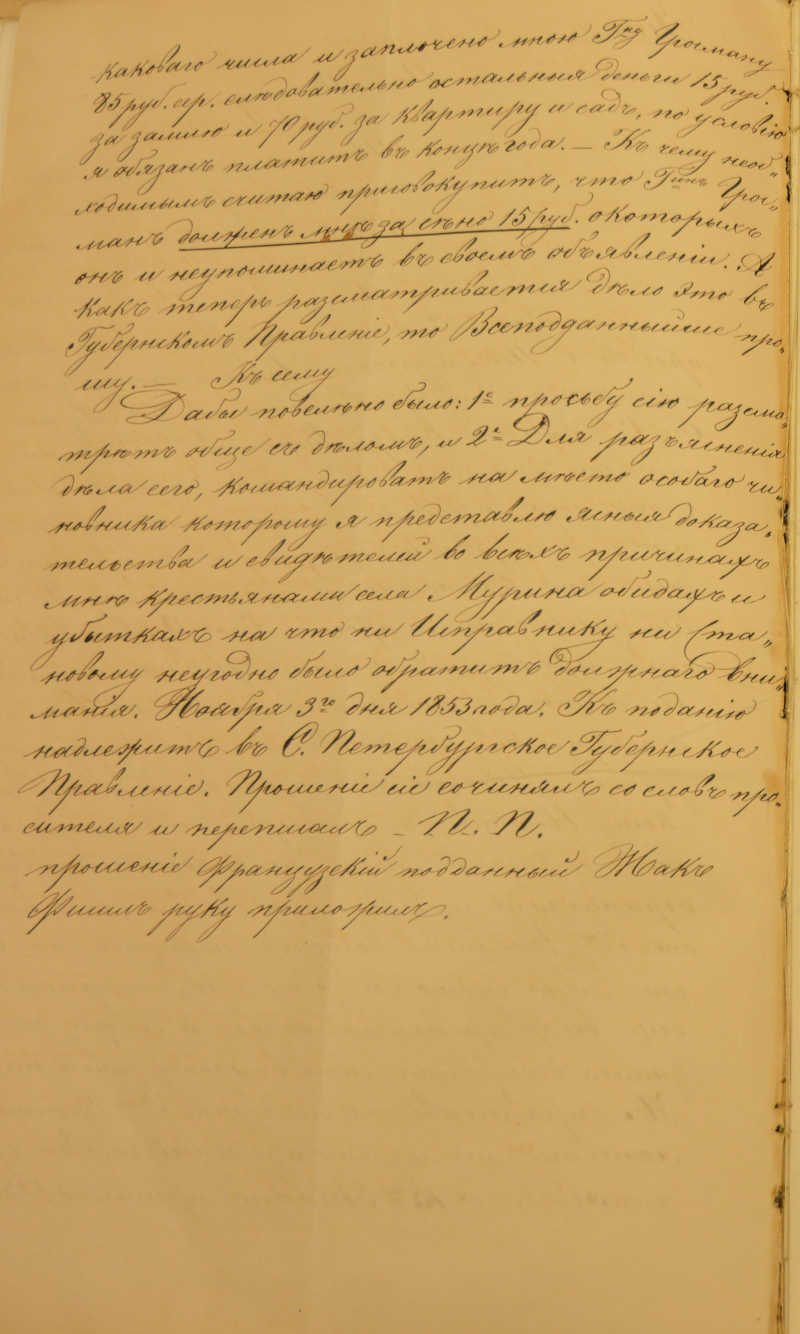 каковаго числа и заплочено мною Гну Гросману
85 руб. сер. слѣдовательно остальныя деньги 15 руб.
за землю и 70 руб. за квартиру и садъ, по условію
я обязанъ платить въ концѣ года. — Къ чему необ„
ходимымъ считаю присовокупить, что Гинъ Грос„
манъ долженъ мнѣ за сѣно 15 руб. о которыхъ
онъ и неупоминаетъ въ своемъ объявленіи. А
какъ теперь разсматривается дѣло это въ
Губернскомъ Правленіе, то Всеподданнѣйше про„
шу. — Къ сему
Дабы повелѣно было: 1е просьбу сію разсма„
трѣть обще съ дѣломъ, и 2е Для разъясненія
дѣла сего, командировать на мѣсто особаго чи„
новника которому я представлю ясныя доказа„
тельства и свидѣтелей во всѣхъ причинахъ
мнѣ крестьянами села Мурина обидахъ и
убыткахъ на что ни Исправнику ни Ста„
новому неугодно было обратить должнаго вни„
манія. Ноября 3го дня 1853 года. Къ поданію
надлежитъ въ С. Петербургское Губернское
Правленіе. Прошеніе сіе сочинялъ со словъ про„
сителя и переписалъ — П. П.
прошеніе Французскій подданный Жакъ
руку приложилъ.